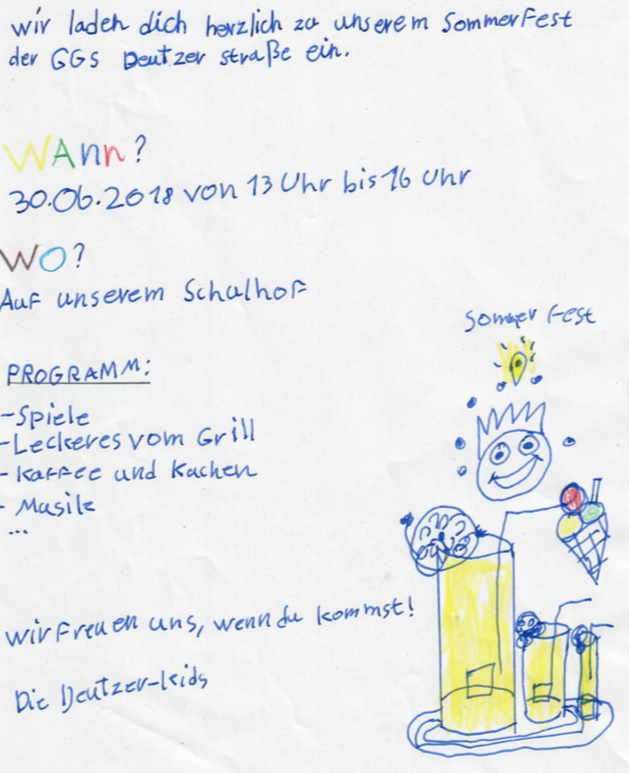 wir laden dich herzlich zu unserem Sommerfest
der GGS Deutzer straße ein.
WAnn?
30.06.2018 von 13 Uhr bis 16 Uhr
WO?
Auf unserem Schulhof
Sommer Fest
PROGRAMM:
-Spiele
-Leckeres vom Grill
- Kaffee und Kuchen
- Musik
...
wir freuen uns, wenn du kommst!
Die Deutzer-kids